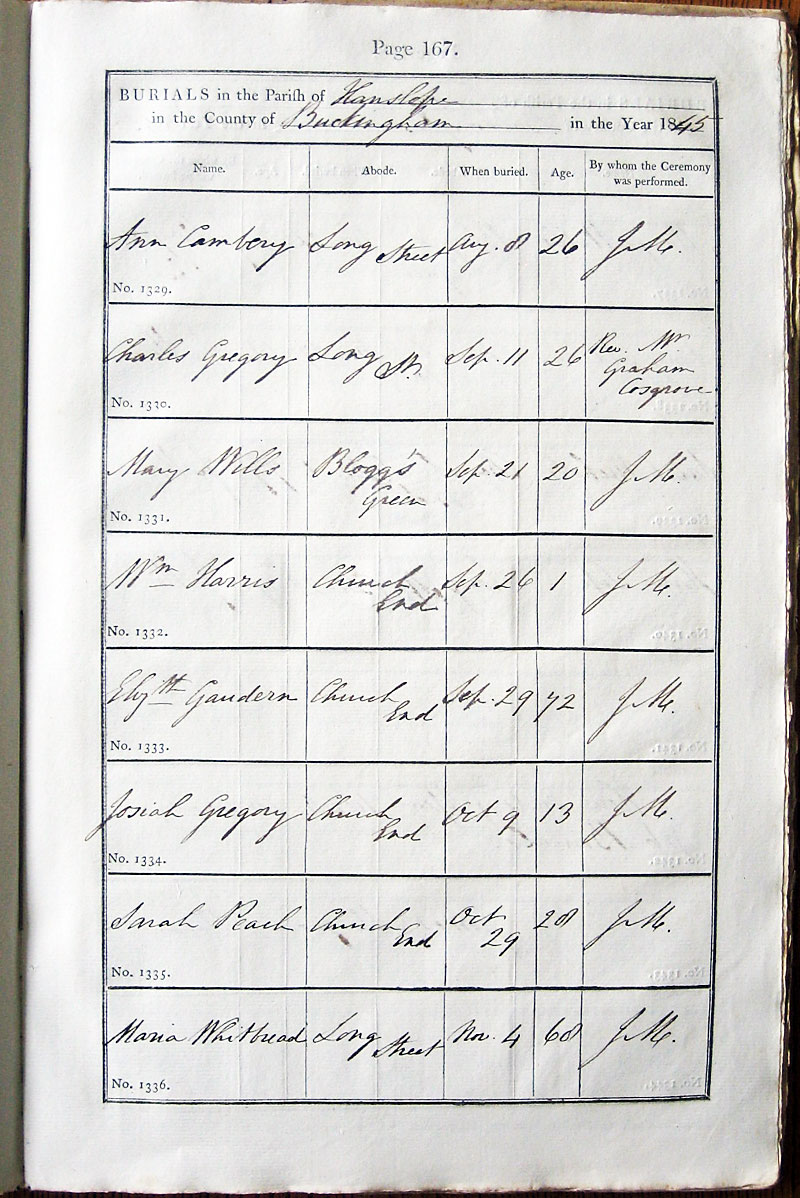 Page 167.
BURIALS in the Parish of Hanslope
in the County of Buckingham in the Year 1845
Name. Abode. When buried. Age. By whom the Ceremony was performed.
Ann Cambery Long Street Aug. 8 26 J M.
No. 1329.
Charles Gregory Long St. Sep. 11 26 Rev. Mr Graham Cosgrove
No. 1330.
Mary Wills Blogg's Green Sep. 21 20 J M.
No. 1331.
Wm Harris Church End Sep. 26 1 J M.
No. 1332.
Elizth Gaudern Church End Sep. 29 72 J M.
No. 1333.
Josiah Gregory Church End Oct 9 13 J M.
No. 1334.
Sarah Peach Church End Oct 29 28 J M.
No. 1335.
Maria Whitbread Long Street Nov. 4 68 J M.
No. 1336.